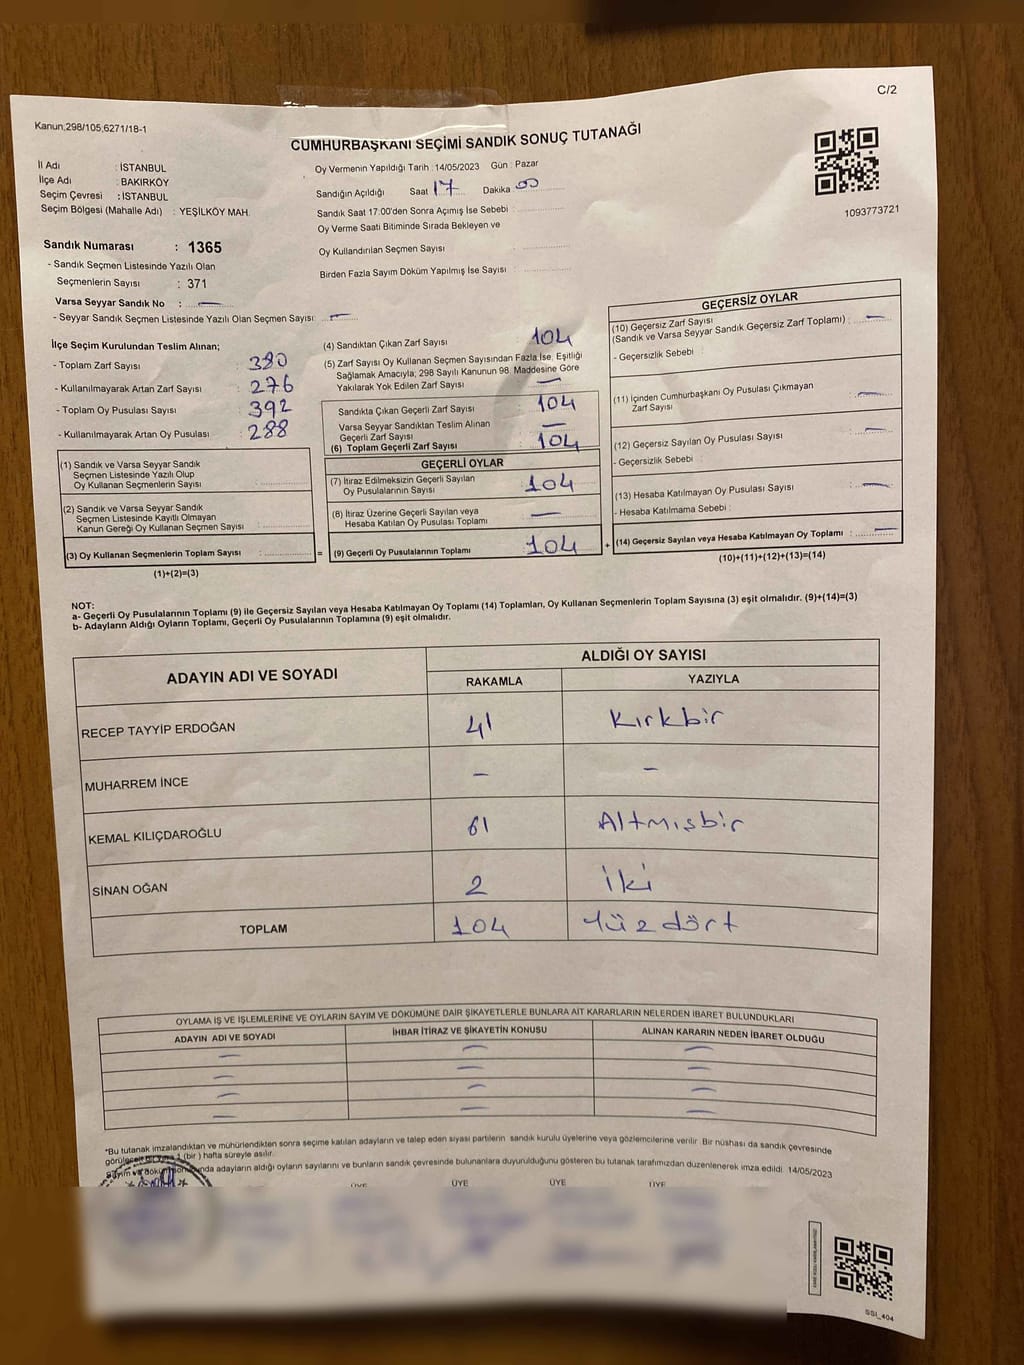 C/2
Kanun;298/105;6271/18-1
CUMHURBAŞKANI SEÇİMİ SANDIK SONUÇ TUTANAĞI
İl Adı : İSTANBUL
İlçe Adı : BAKIRKÖY
Seçim Çevresi : İSTANBUL
Seçim Bölgesi (Mahalle Adı) : YEŞİLKÖY MAH.
Oy Vermenin Yapıldığı Tarih :14/05/2023 Gün : Pazar
Sandığın Açıldığı Saat 17 Dakika 00
Sandık Saat 17:00'den Sonra Açımış İse Sebebi :
Oy Verme Saati Bitiminde Sırada Bekleyen ve
Oy Kullandırılan Seçmen Sayısı :
Birden Fazla Sayım Döküm Yapılmış İse Sayısı :
1093773721
Sandık Numarası : 1365
- Sandık Seçmen Listesinde Yazılı Olan
Seçmenlerin Sayısı : 371
Varsa Seyyar Sandık No : —
- Seyyar Sandık Seçmen Listesinde Yazılı Olan Seçmen Sayısı: —
İlçe Seçim Kurulundan Teslim Alınan;
- Toplam Zarf Sayısı : 380
- Kullanılmayarak Artan Zarf Sayısı : 276
- Toplam Oy Pusulası Sayısı : 392
- Kullanılmayarak Artan Oy Pusulası : 288
(1) Sandık ve Varsa Seyyar Sandık
Seçmen Listesinde Yazılı Olup
Oy Kullanan Seçmenlerin Sayısı :
(2) Sandık ve Varsa Seyyar Sandık
Seçmen Listesinde Kayıtlı Olmayan
Kanun Gereği Oy Kullanan Seçmen Sayısı :
(3) Oy Kullanan Seçmenlerin Toplam Sayısı : =
(1)+(2)=(3)
(4) Sandıktan Çıkan Zarf Sayısı : 104
(5) Zarf Sayısı Oy Kullanan Seçmen Sayısından Fazla İse, Eşitliği
Sağlamak Amacıyla; 298 Sayılı Kanunun 98. Maddesine Göre
Yakılarak Yok Edilen Zarf Sayısı : —
Sandıkta Çıkan Geçerli Zarf Sayısı : 104
Varsa Seyyar Sandıktan Teslim Alınan
Geçerli Zarf Sayısı : —
(6) Toplam Geçerli Zarf Sayısı : 104
GEÇERLİ OYLAR
(7) İtiraz Edilmeksizin Geçerli Sayılan
Oy Pusulalarının Sayısı : 104
(8) İtiraz Üzerine Geçerli Sayılan veya
Hesaba Katılan Oy Pusulası Toplamı : —
(9) Geçerli Oy Pusulalarının Toplamı : 104 +
GEÇERSİZ OYLAR
(10) Geçersiz Zarf Sayısı
(Sandık ve Varsa Seyyar Sandık Geçersiz Zarf Toplamı) : —
- Geçersizlik Sebebi :
(11) İçinden Cumhurbaşkanı Oy Pusulası Çıkmayan
Zarf Sayısı : —
(12) Geçersiz Sayılan Oy Pusulası Sayısı : —
- Geçersizlik Sebebi :
(13) Hesaba Katılmayan Oy Pusulası Sayısı : —
- Hesaba Katılmama Sebebi :
(14) Geçersiz Sayılan veya Hesaba Katılmayan Oy Toplamı : —
(10)+(11)+(12)+(13)=(14)
NOT:
a- Geçerli Oy Pusulalarının Toplamı (9) ile Geçersiz Sayılan veya Hesaba Katılmayan Oy Toplamı (14) Toplamları, Oy Kullanan Seçmenlerin Toplam Sayısına (3) eşit olmalıdır. (9)+(14)=(3)
b- Adayların Aldığı Oyların Toplamı, Geçerli Oy Pusulalarının Toplamına (9) eşit olmalıdır.
ADAYIN ADI VE SOYADI
ALDIĞI OY SAYISI
RAKAMLA YAZIYLA
RECEP TAYYİP ERDOĞAN 41 Kırkbir
MUHARREM İNCE — —
KEMAL KILIÇDAROĞLU 61 Altmışbir
SİNAN OĞAN 2 İki
TOPLAM 104 Yüz dört
OYLAMA İŞ VE İŞLEMLERİNE VE OYLARIN SAYIM VE DÖKÜMÜNE DAİR ŞİKAYETLERLE BUNLARA AİT KARARLARIN NELERDEN İBARET BULUNDUKLARI
ADAYIN ADI VE SOYADI İHBAR İTİRAZ VE ŞİKAYETİN KONUSU ALINAN KARARIN NEDEN İBARET OLDUĞU
— — —
— — —
— — —
— — —
*Bu tutanak imzalandıktan ve mühürlendikten sonra seçime katılan adayların ve talep eden siyasi partilerin sandık kurulu üyelerine veya gözlemcilerine verilir. Bir nüshası da sandık çevresinde
görülecek bir yere 1 (bir) hafta süreyle asılır.
Sayım ve döküm sonunda adayların aldığı oyların sayılarını ve bunların sandık çevresinde bulunanlara duyurulduğunu gösteren bu tutanak tarafımızdan düzenlenerek imza edildi. 14/05/2023
ÜYE ÜYE ÜYE ÜYE
SSI_404